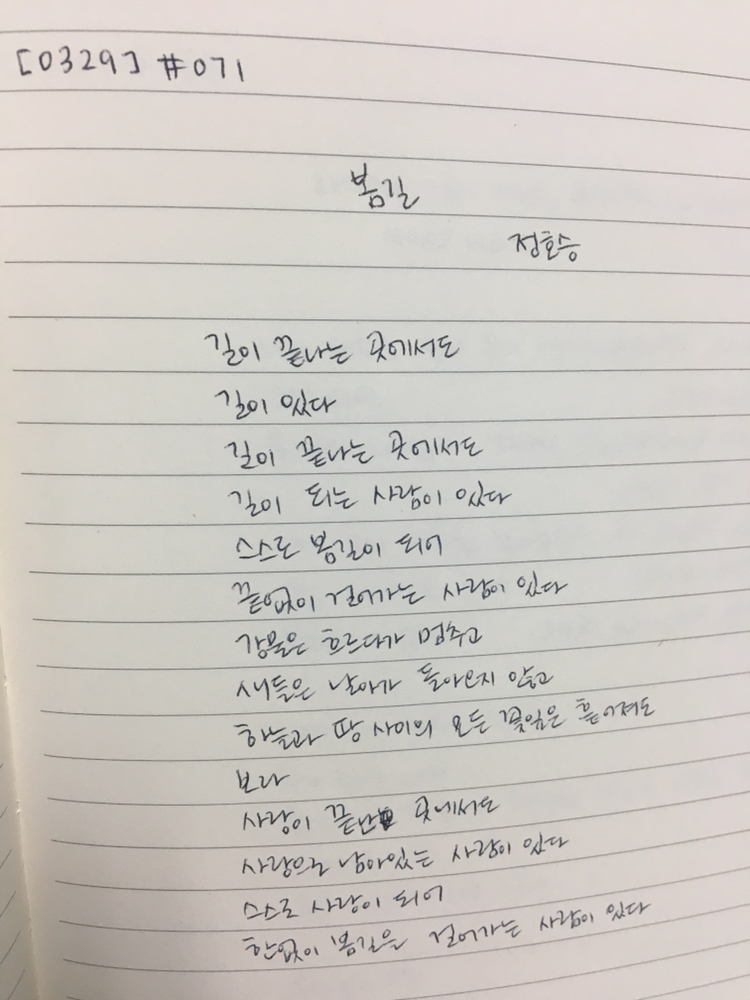 [0329] #071
봄길
정호승
길이 끝나는 곳에서도
길이 있다
길이 끝나는 곳에서도
길이 되는 사람이 있다
스스로 봄길이 되어
끝없이 걸어가는 사람이 있다
강물은 흐르다가 멈추고
새들은 날아가 돌아오지 않고
하늘과 땅 사이의 모든 꽃잎은 흩어져도
보라
사랑이 끝난 곳에서도
사랑으로 남아있는 사람이 있다
스스로 사랑이 되어
한없이 봄길을 걸어가는 사람이 있다